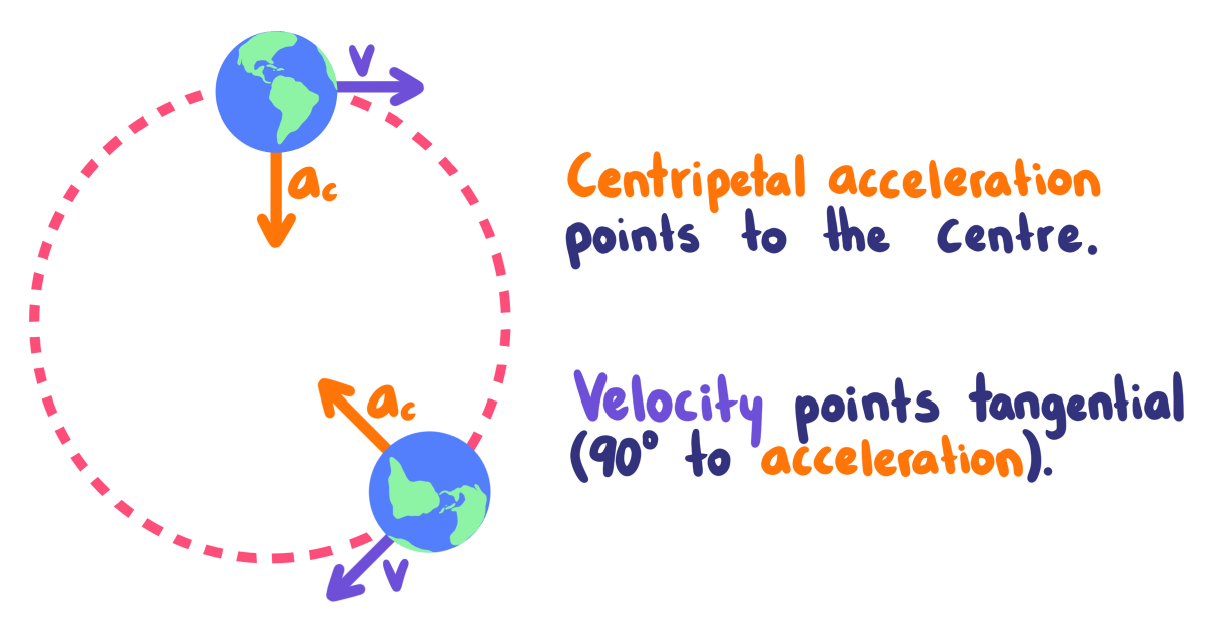 v
ac
Centripetal acceleration
points to the centre.
ac
Velocity points tangential
(90° to acceleration).
v